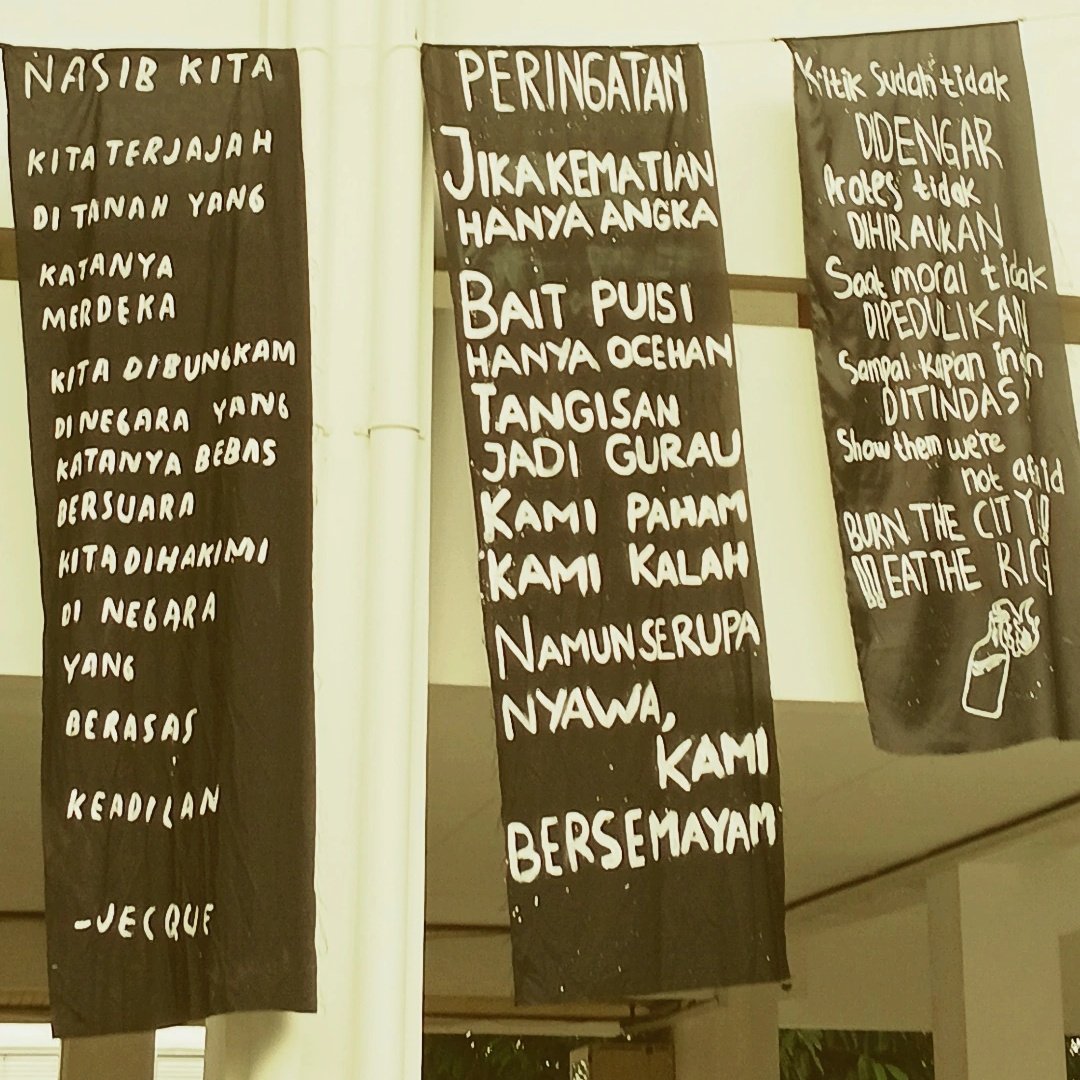 NASIB KITA
KITA TERJAJAH
DI TANAH YANG
KATANYA
MERDEKA
KITA DIBUNGKAM
DI NEGARA YANG
KATANYA BEBAS
BERSUARA
KITA DIHAKIMI
DI NEGARA
YANG
BERASAS
KEADILAN
-JECQUE
PERINGATAN
JIKA KEMATIAN
HANYA ANGKA
BAIT PUISI
HANYA OCEHAN
TANGISAN
JADI GURAU
KAMI PAHAM
KAMI KALAH
NAMUN SERUPA
NYAWA,
KAMI
BERSEMAYAM
Kritik Sudah tidak
DIDENGAR
Protes tidak
DIHIRAUKAN
Saat moral tidak
DIPEDULIKAN
Sampai kapan ingin
DITINDAS?
Show them we're
not afrid
BURN THE CITY!!
!!! EAT THE RICH